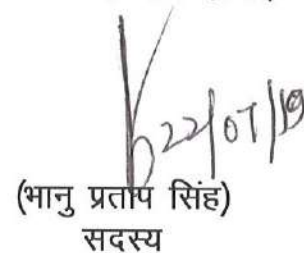 22/07/19
(भानु प्रताप सिंह)
सदस्य